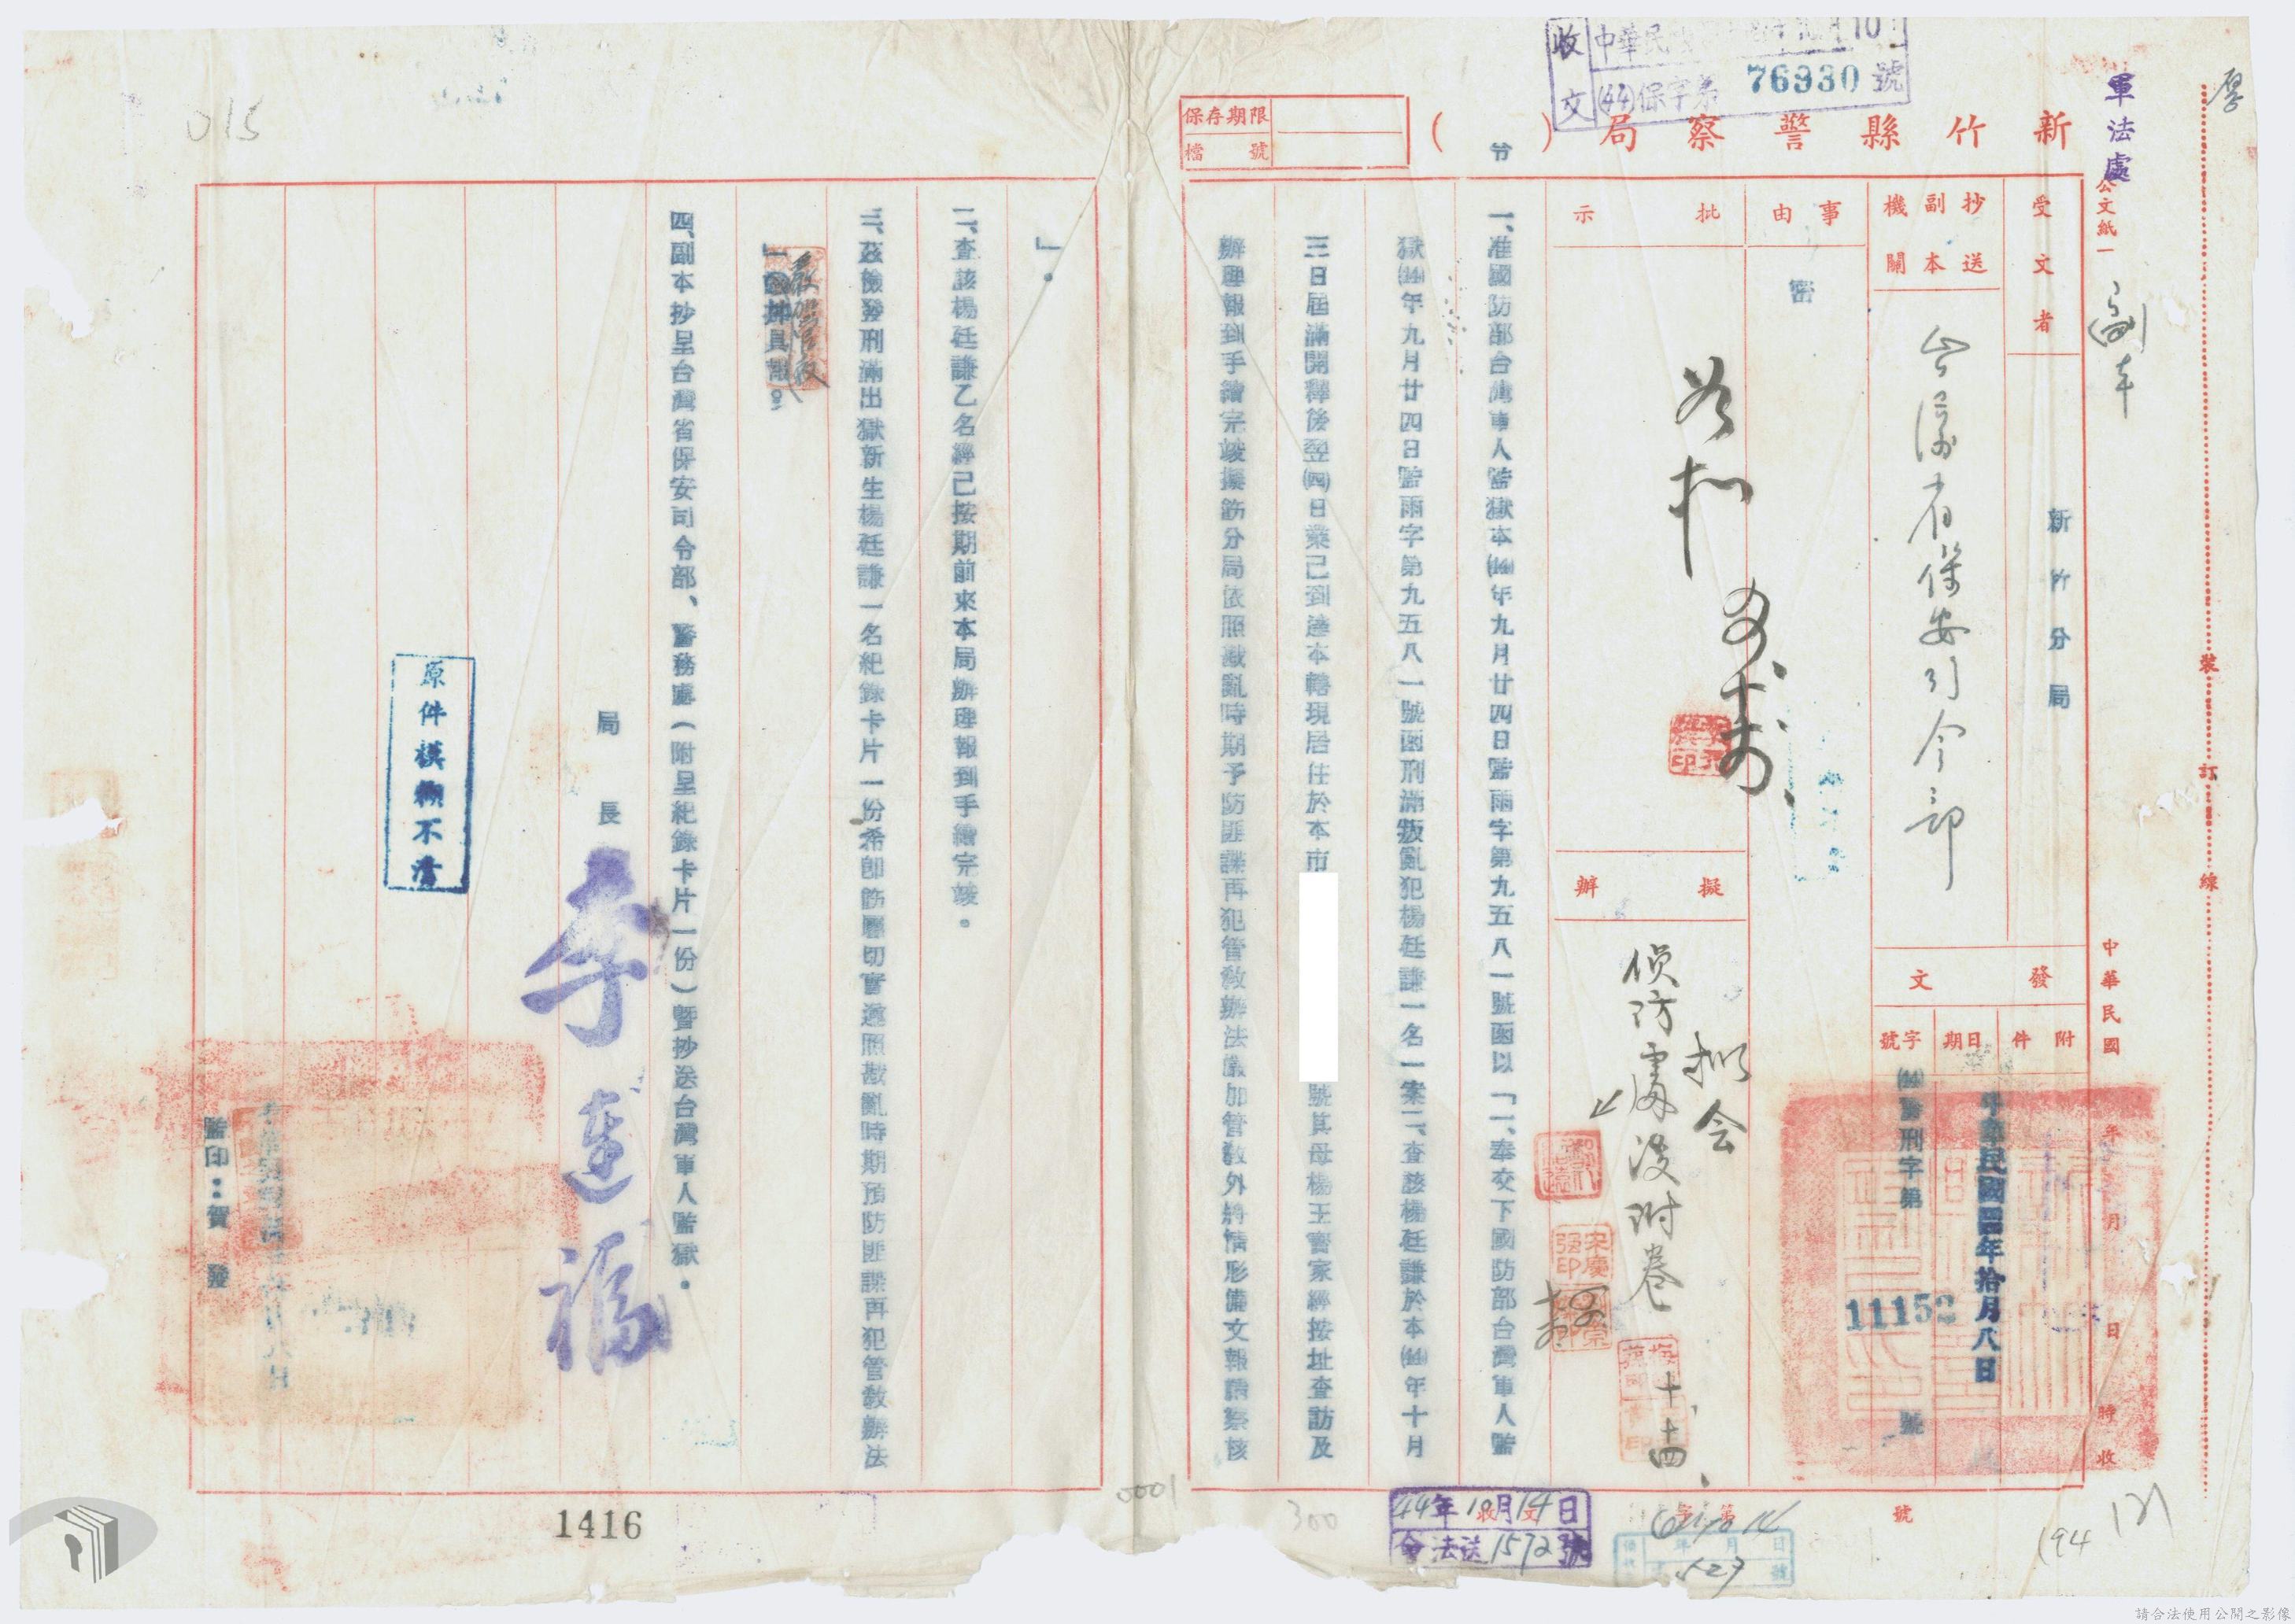 收文
(44)保字第 76930 號
軍法處
新竹縣警察局（ ）
令
保存期限
檔號
公文紙一
副本
受文者
新竹分局
抄送副本機關
台灣省保安司令部
事由
密
批示
擬辦
擬会
偵防處後附卷
十、十四、
發文
附件
日期
字號
中華民國四四年拾月八日
(44)警刑字第
11152
號
中華民國
年
月
日
時收
裝
訂
線
一、准國防部台灣軍人監獄本(44)年九月廿四日監雨字第九五八一號函以「一、奉交下國防部台灣軍人監
獄(44)年九月廿四日監雨字第九五八一號函刑滿叛亂犯楊廷謙一名一案二、查該楊廷謙於本(44)年十月
三日屆滿開釋後翌(四)日業已到達本轄現居住於本市
號其母楊王寶家經按址查訪及
辦理報到手續完竣擬飭分局依照戡亂時期予防匪諜再犯管教辦法嚴加管教外將情形備文報請察核
」。
二、查該楊廷謙乙名經已按期前來本局辦理報到手續完竣。
三、茲檢發刑滿出獄新生楊廷謙一名紀錄卡片一份希即飭屬切實遵照戡亂時期預防匪諜再犯管教辦法
」
具報。
四、副本抄呈台灣省保安司令部、警務處（附呈紀錄卡片一份）暨抄送台灣軍人監獄。
局長
李連福
原件模糊不清
監印：賀發
015
1416
0001
300
44年10月14日
收文
令法送1572號
字第
號
527
194
121
請合法使用公開之影像